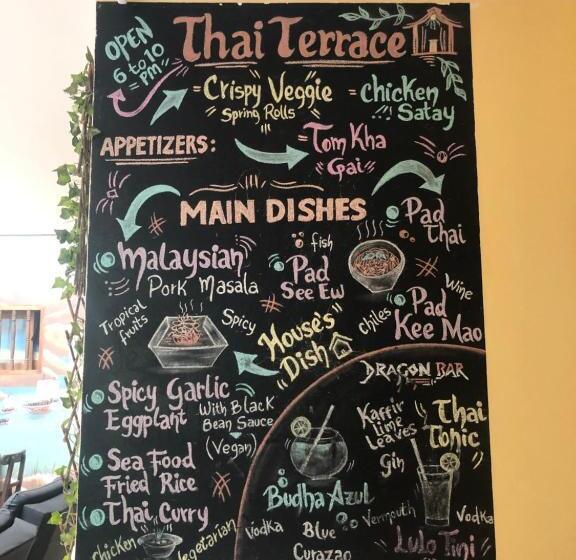 OPEN
6 to 10
PM
Thai Terrace
Crispy Veggie
Spring Rolls
chicken
Satay
APPETIZERS:
Tom Kha
Gai
MAIN DISHES
Pad
Thai
Malaysian
Pork Masala
fish
Pad
See Ew
Wine
Pad
Kee Mao
chiles
Tropical
fruits
Spicy
House's
Dish
Spicy Garlic
Eggplant
With Black
Bean Sauce
(Vegan)
Sea Food
Fried Rice
Thai Curry
chicken
Vegetarian
DRAGON BAR
Kaffir
Lime
Leaves
Gin
Thai
Tonic
Budha Azul
Vodka
Blue
Curazao
Vermouth
Vodka
Lulo Tini